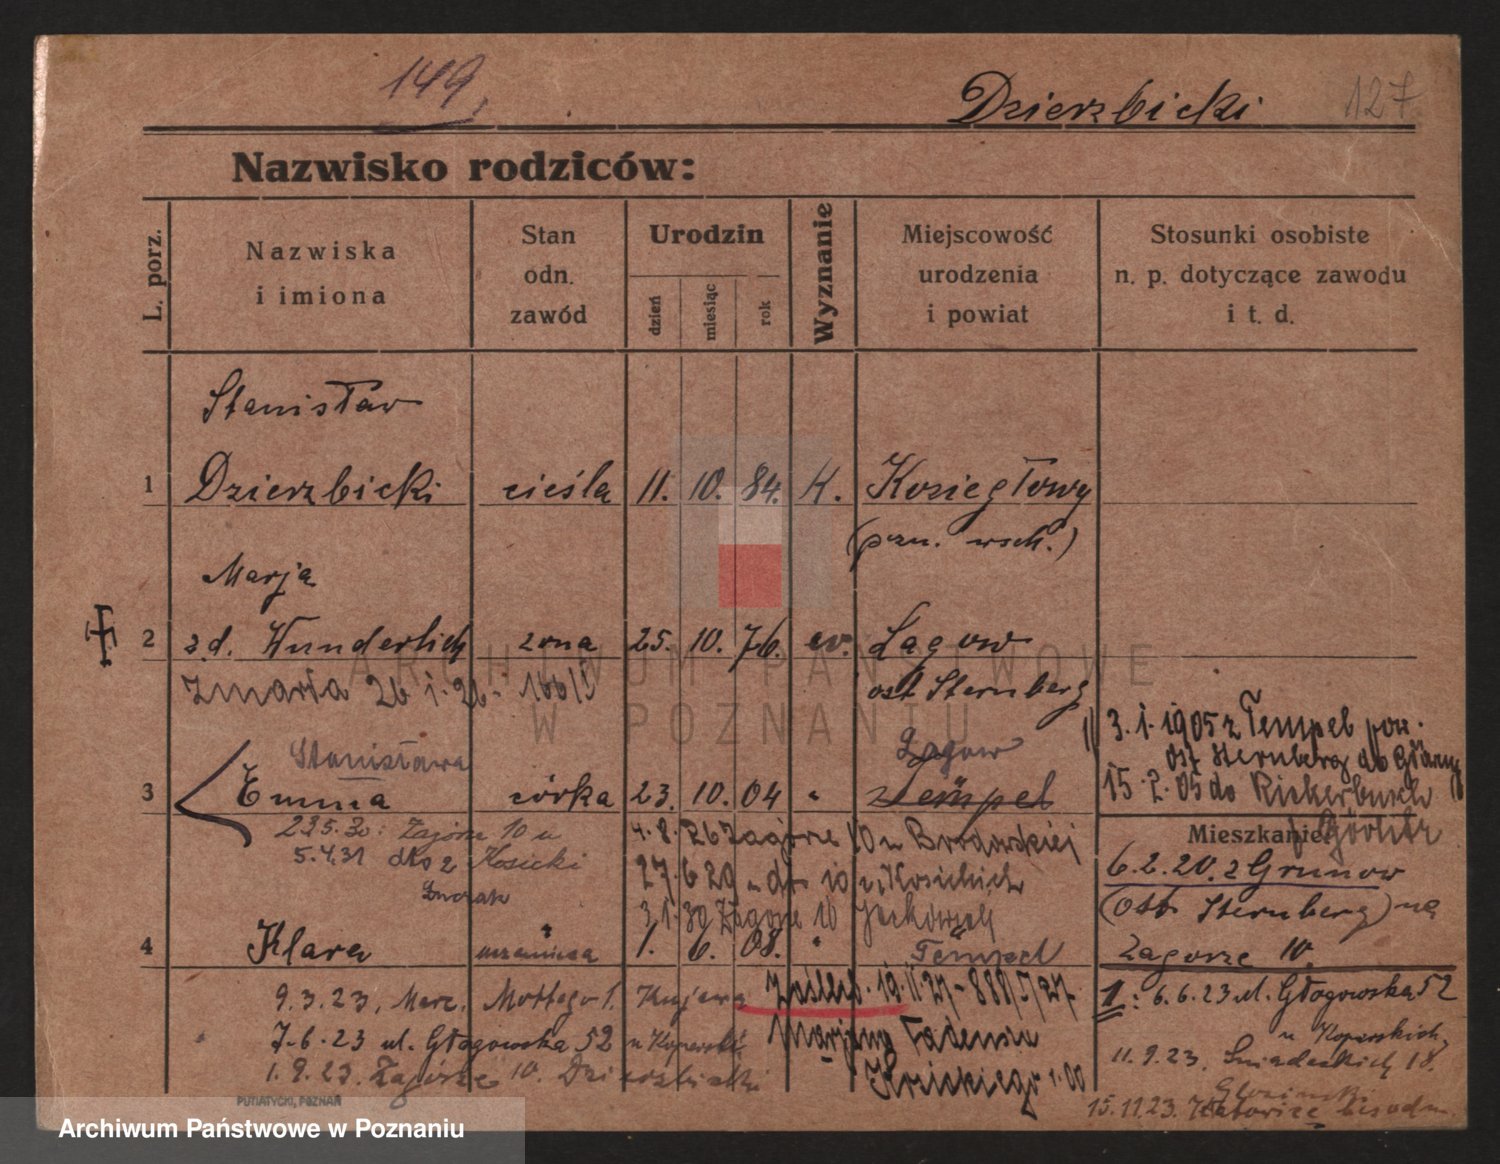 149.
Dzierzbicki 127
Nazwisko rodziców:
L. porz.
Nazwiska
i imiona
Stan
odn.
zawód
Urodzin
dzień
miesiąc
rok
Wyznanie
Miejscowość
urodzenia
i powiat
Stosunki osobiste
n. p. dotyczące zawodu
i t. d.
Stanisław
1 Dzierzbicki cieśla 11. 10. 84. K. Koziegłowy
(pzn. wsch.)
Marja
2 z.d. Wunderlich żona 25. 10. 76. ew. Łagow
Zmarła 26 1. 26 - 166/3 ost Sternberg
3. 1. 1905 z Tempel pow.
ost Sternberg do
Stanisława Łagow
3 Emma córka 23. 10. 04 " Tempel
15. 2. 05 do
Mieszkanie:
Görlitz
23.5.30: Zagórze 10 u
5.4.31 dto z Kosicki
4. 8. 26 Zagórze 10 u Brodowskiej
27. 6 29 " dto 10 u Kosickich
3. 1. 30 Zagórze 10
6. 2. 20. z Grunow
(Ost Sternberg) na
Zagórze 10.
4 Klara " 1. 6. 08. " Tempel
9. 3. 23, Marc. Mottego 1.
7. 6. 23 ul. Głogowska 52
1. 9. 23. Zagórze 10. Dzierzbicki
Zaślub. 19. II. 27 - 888/3/27
Marjana Tadeusza
1: 6. 6. 23 ul. Głogowska 52
11. 9. 23. Śniadeckich 18.
15. 11. 23. Katowice
PUTIATYCKI, POZNAŃ
ARCHIWUM PAŃSTWOWE
W POZNANIU
Archiwum Państwowe w Poznaniu